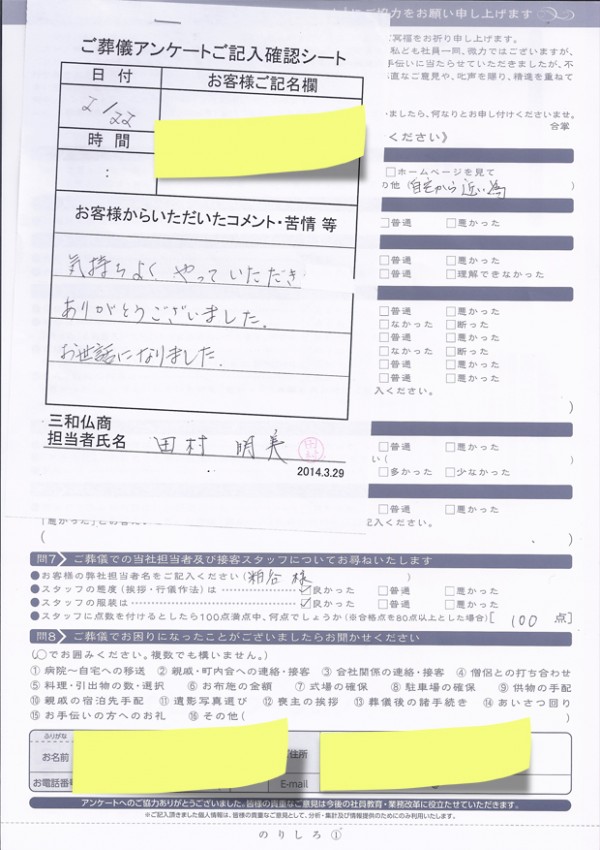 にご協力をお願い申し上げます
ご冥福をお祈り申します。
私ども社員一同、微力ではございますが、
手伝いに当たらせていただきましたが、不
直なご意見や、叱声を賜り、精進を重ねて
いましたら、何なりとお申し付けくださいませ。
合掌
ください》
ご葬儀アンケートご記入確認シート
日付
お客様ご記名欄
2/22
時間
:
お客様からいただいたコメント・苦情 等
気持ちよく やっていただき
ありがとうございました。
お世話になりました。
三和仏商
担当者氏名 田村 明美
2014.3.29
□ホームページを見て
の他(自宅から近い為)
□普通 □悪かった
□普通 □悪かった
□普通 □理解できなかった
□普通 □悪かった
□なかった □断った
□普通 □悪かった
□なかった □断った
□普通 □悪かった
□普通 □悪かった
入ください。
)
□普通 □悪かった
い( )
□多かった □少なかった
□普通 □悪かった
記入ください。
( )
問7 ご葬儀での当社担当者及び接客スタッフについてお尋ねいたします
●お客様の弊社担当者名をご記入ください(粕谷 様)
●スタッフの態度(挨拶・行儀作法)は ☑良かった □普通 □悪かった
●スタッフの服装は ☑良かった □普通 □悪かった
●スタッフに点数を付けるとしたら100点満点中、何点でしょうか(※合格点を80点以上とした場合)[ 100 点]
問8 ご葬儀でお困りになったことがございましたらお聞かせください
(○でお囲みください。複数でも構いません。)
① 病院～自宅への移送 ② 親戚・町内会への連絡・接客 ③ 会社関係の連絡・接客 ④ 僧侶との打ち合わせ
⑤ 料理・引出物の数・選択 ⑥ お布施の金額 ⑦ 式場の確保 ⑧ 駐車場の確保 ⑨ 供物の手配
⑩ 親戚の宿泊先手配 ⑪ 遺影写真選び ⑫ 喪主の挨拶 ⑬ 葬儀後の諸手続き ⑭ あいさつ回り
⑮ お手伝いの方へのお礼 ⑯ その他( )
ふりがな
お名前
ご住所
お電話番号
E-mail
アンケートへのご協力ありがとうございました。皆様の貴重なご意見は今後の社員教育・業務改革に役立たせていただきます。
※ご記入頂きました個人情報は、皆様の貴重なご意見として、分析・集計及び情報提供のためにのみ利用いたします。
のりしろ①